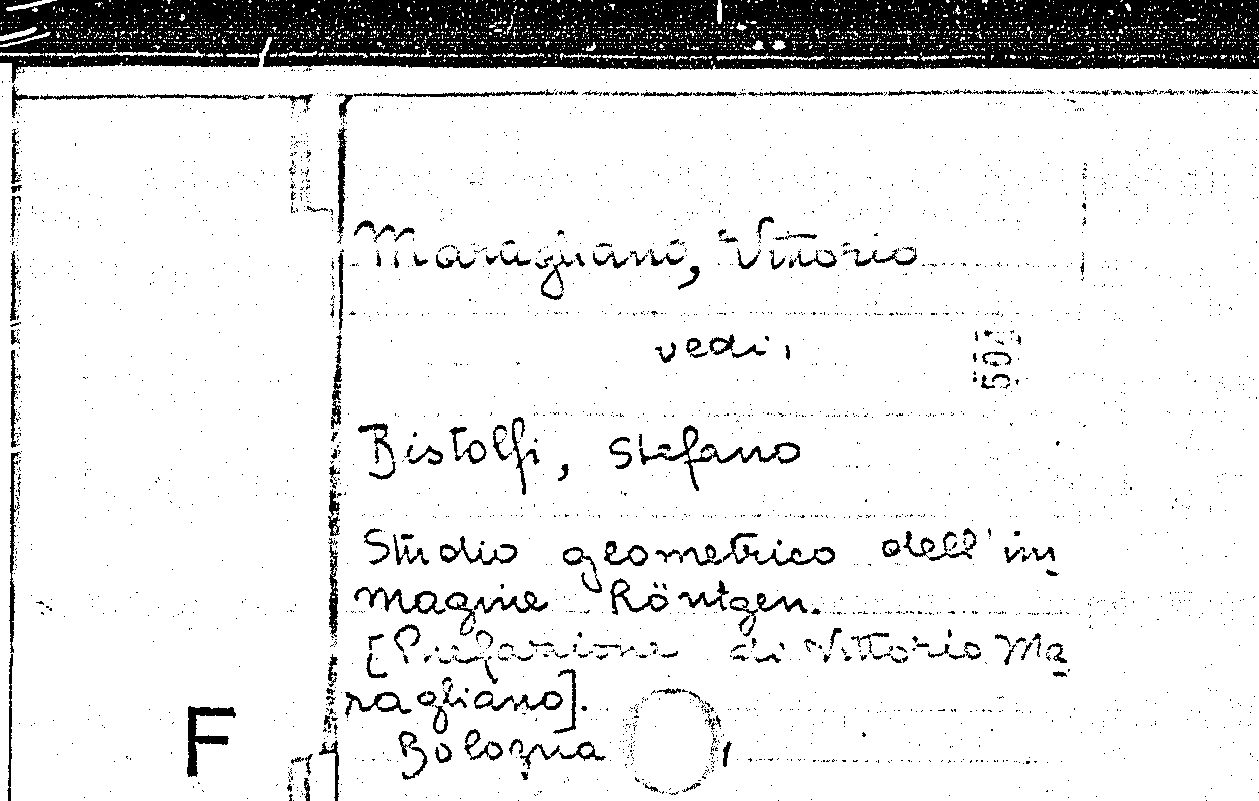 Maragliano, Vittorio
vedi,
Bistolfi, Stefano
Studio geometrico dell'im
magine Röntgen.
[Prefazione di Vittorio Ma
ragliano].
F
Bologna ,